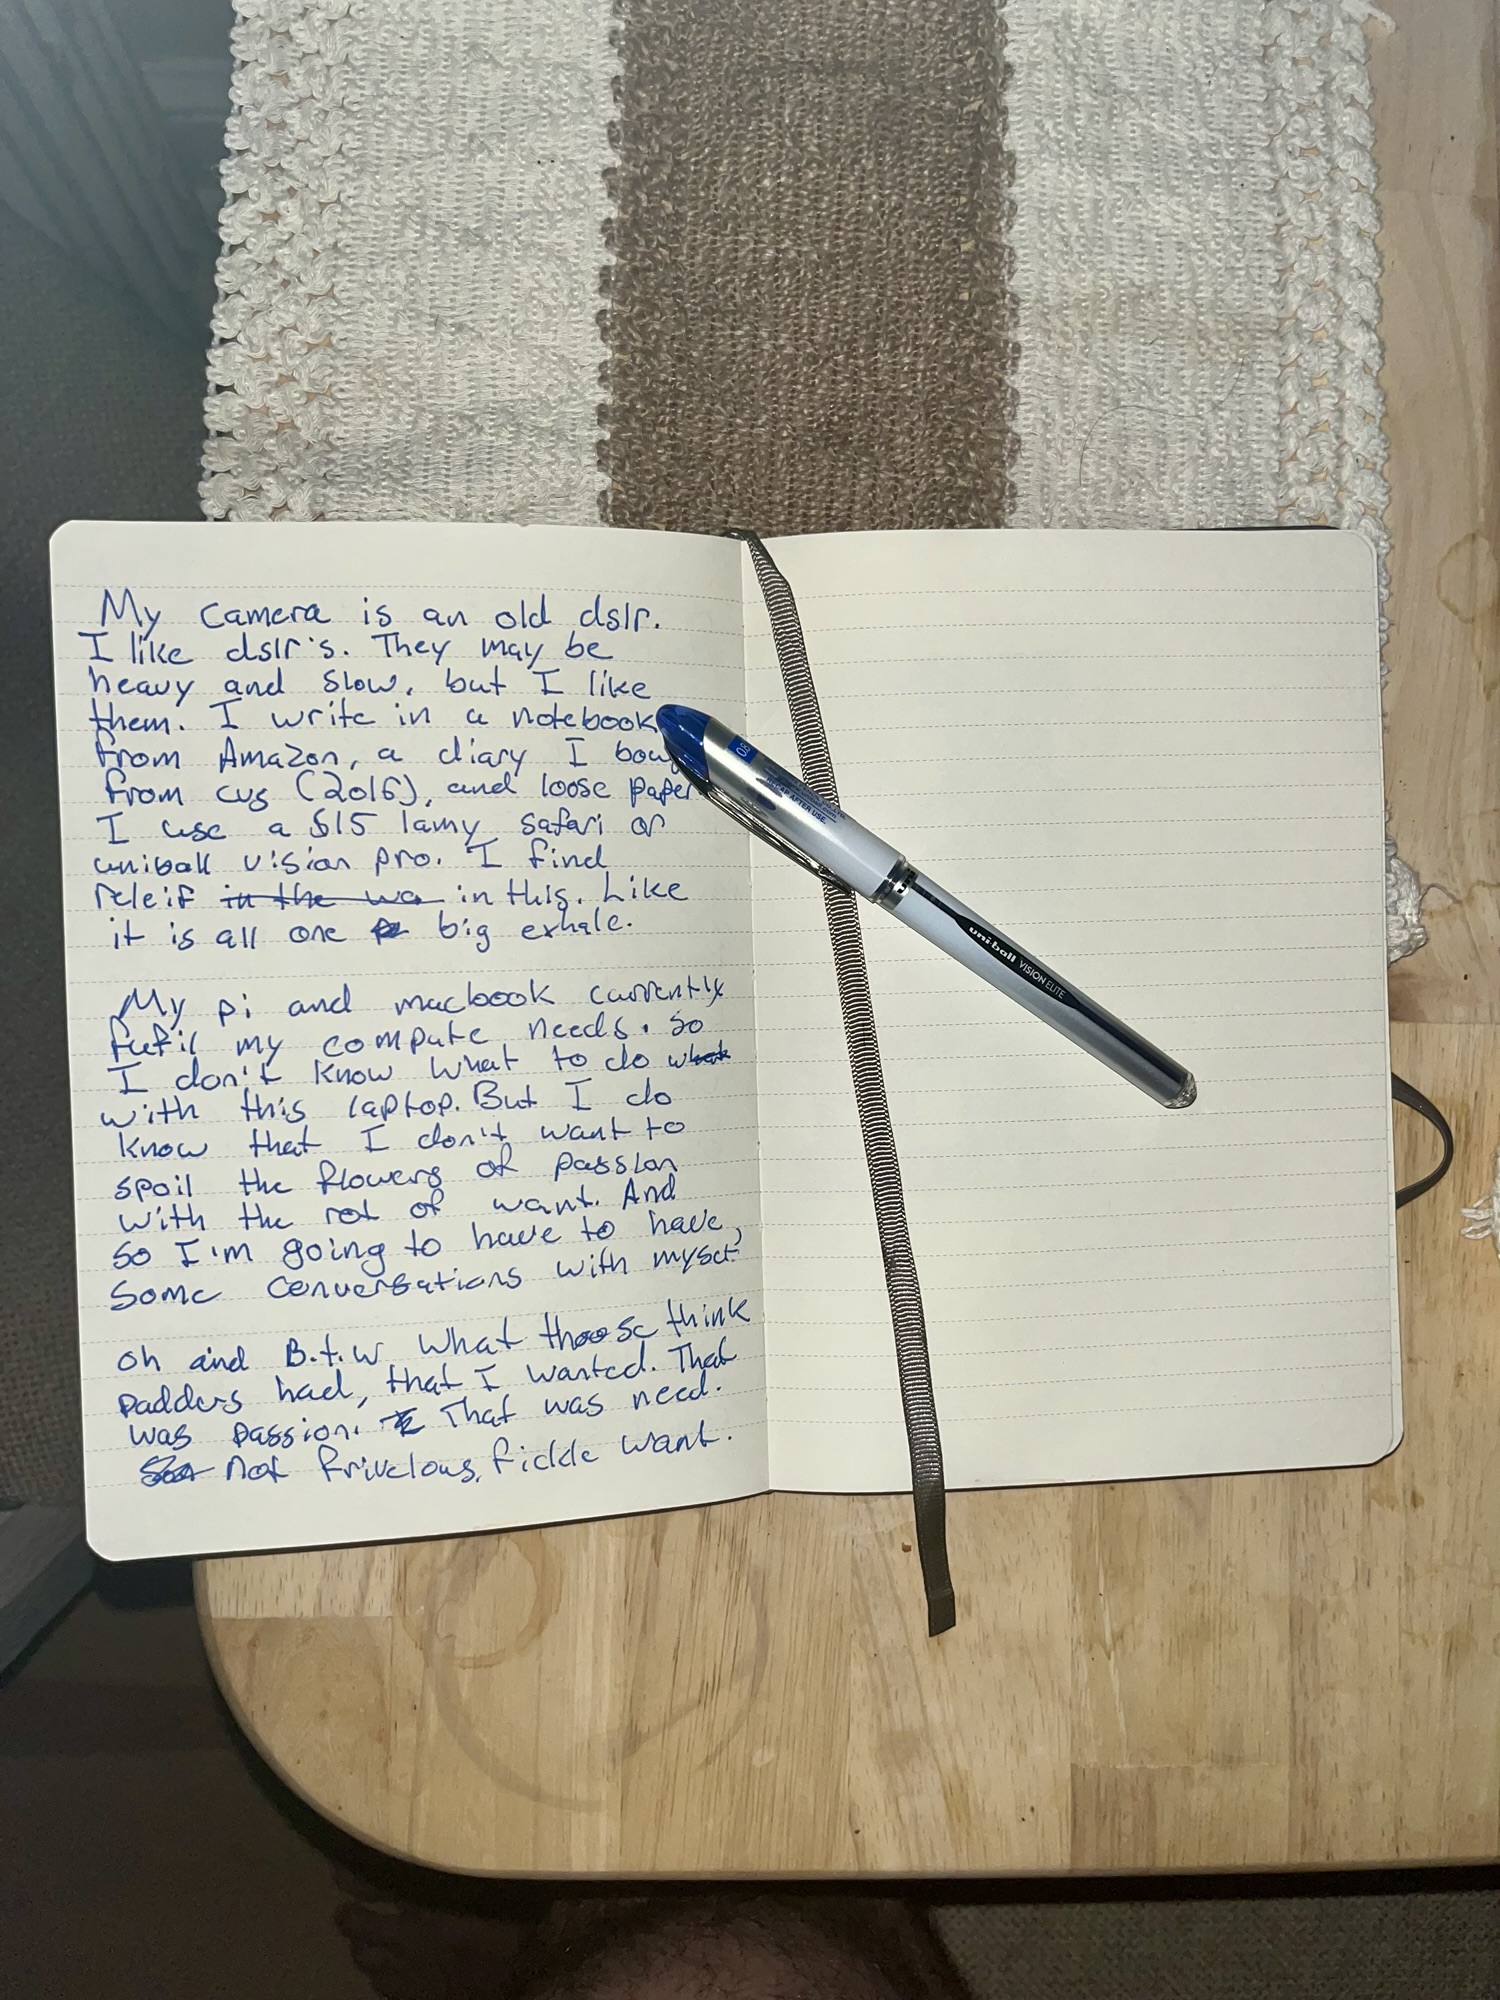 My camera is an old dslr.
I like dslr's. They may be
heavy and slow, but I like
them. I write in a notebook
from Amazon, a diary I
from cvs (2016), and loose paper
I use a $15 lamy safari or
uniball vision pro. I find
releif in the wa in this. Like
it is all one big exhale.
My pi and macbook currently
my compute needs. So
I don't know what to do what
with this laptop. But I do
know that I don't want to
spoil the flowers of passion
with the rot of want. And
so I'm going to have to have,
some conversations with
oh and B.t.w what those think
padders had, that I wanted. That
was passion. That was need.
not frivelous, fickle want.
08
RECAP AFTER USE.
uni-ball VISION ELITE